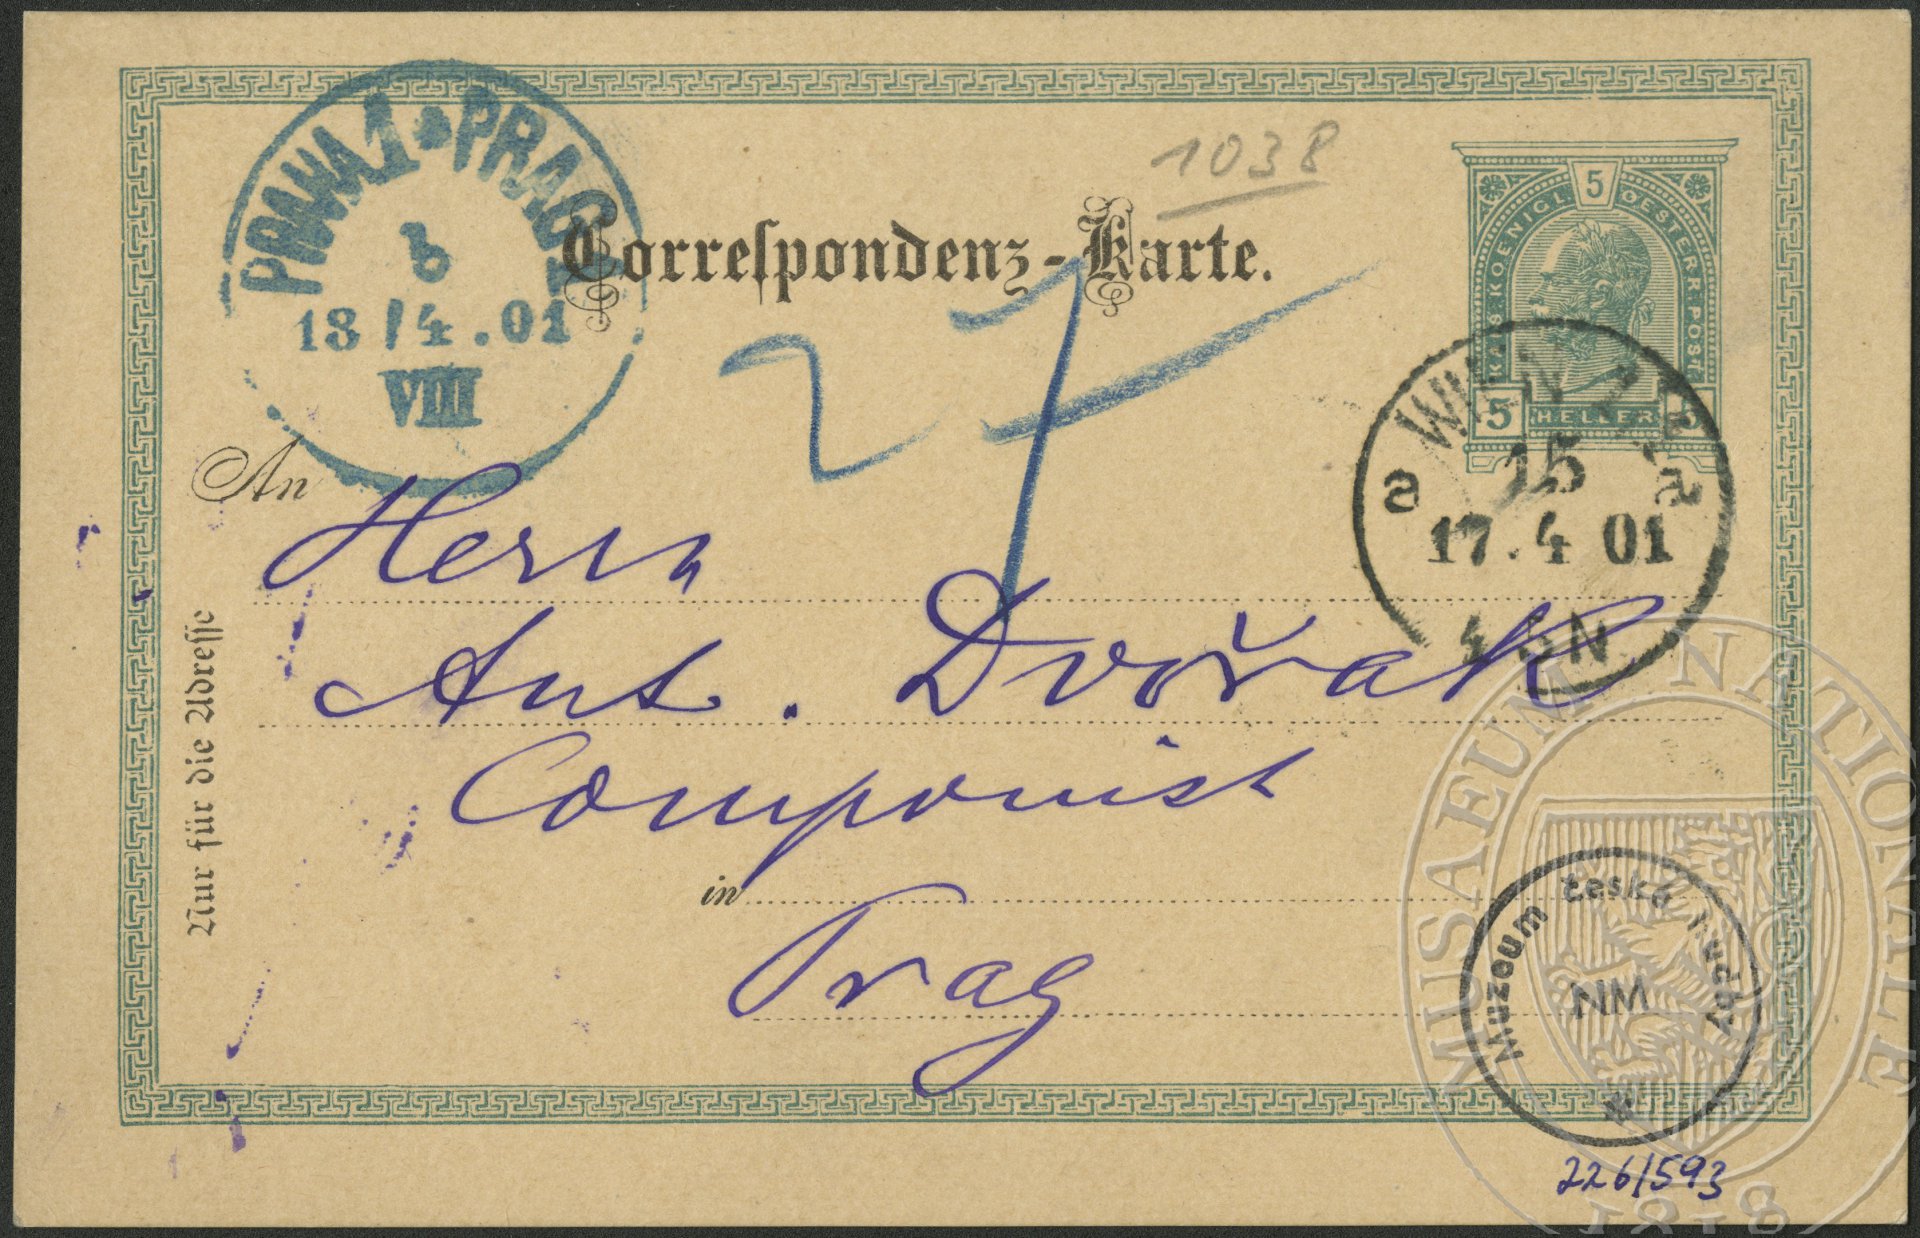 PRAHA 1 * PRAG
b
18/4.01
VIII
1038
Correspondenz-Karte.
27
5
KAIS. KOENIGL. OESTERR. POST
5 HELLER 5
WIEN
15
17.4 01
An
Herrn
Ant. Dvořak
Componist
in
Prag
Nur für die Adresse
Muzeum České hudby
NM
226/593
MUSAEUM NATIONALE
1818